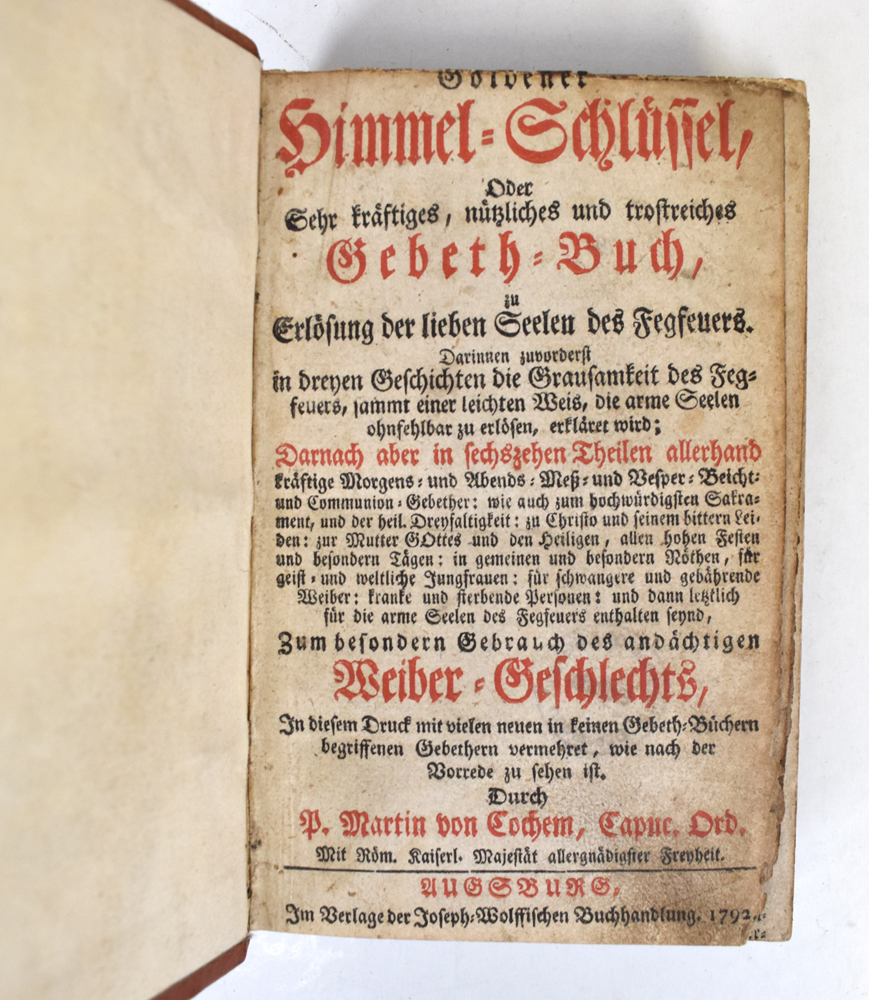 Goldener
Himmel-Schlüssel,
Oder
Sehr kräftiges, nützliches und trostreiches
Gebeth-Buch,
zu
Erlösung der lieben Seelen des Fegfeuers.
Darinnen zuvorderst
in dreyen Geschichten die Grausamkeit des Feg-
feuers, sammt einer leichten Weis, die arme Seelen
ohnfehlbar zu erlösen, erkläret wird;
Darnach aber in sechszehen Theilen allerhand
kräftige Morgens- und Abends- Meß- und Vesper- Beicht-
und Communion-Gebether: wie auch zum hochwürdigsten Sakra-
ment, und der heil. Dreyfaltigkeit: zu Christo und seinem bittern Lei-
den: zur Mutter GOttes und den Heiligen, allen hohen Festen
und besondern Tägen: in gemeinen und besondern Nöthen, für
geist- und weltliche Jungfrauen: für schwangere und gebährende
Weiber: kranke und sterbende Personen: und dann letzlich
für die arme Seelen des Fegfeuers enthalten seynd,
Zum besondern Gebrauch des andächtigen
Weiber-Geschlechts,
In diesem Druck mit vielen neuen in keinen Gebeth-Büchern
begriffenen Gebethern vermehret, wie nach der
Vorrede zu sehen ist.
Durch
P. Martin von Cochem, Capuc. Ord.
Mit Röm. Kaiserl. Majestät allergnädigster Freyheit.
AUGSBURG,
Im Verlage der Joseph-Wolffischen Buchhandlung. 1792.